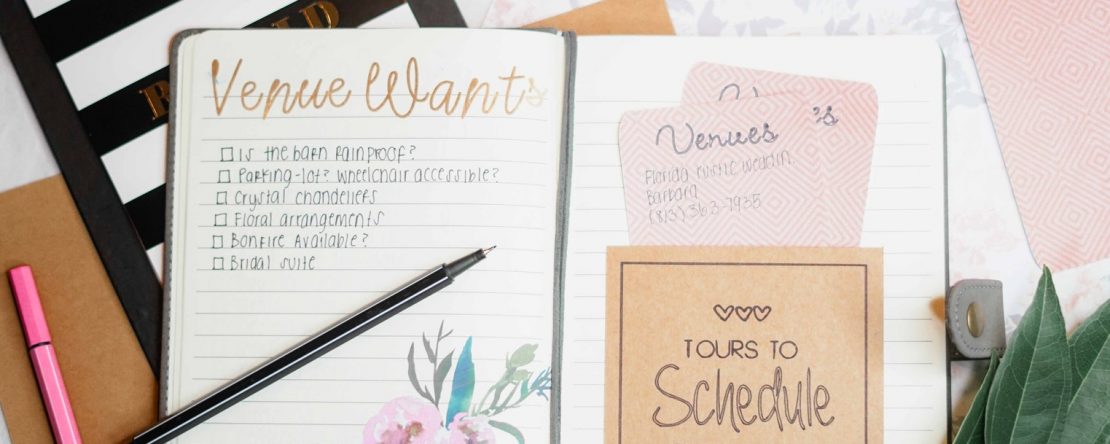 Venue Want's
□ Is the barn rainproof?
□ Parking-lot? wheelchair accessible?
□ Crystal chandeliers
□ Floral arrangements
□ Bonfire Available?
□ Bridal suite
Venues
Florida rustic weddin.
Barbara
(813) 363-7935
TOURS TO
Schedule